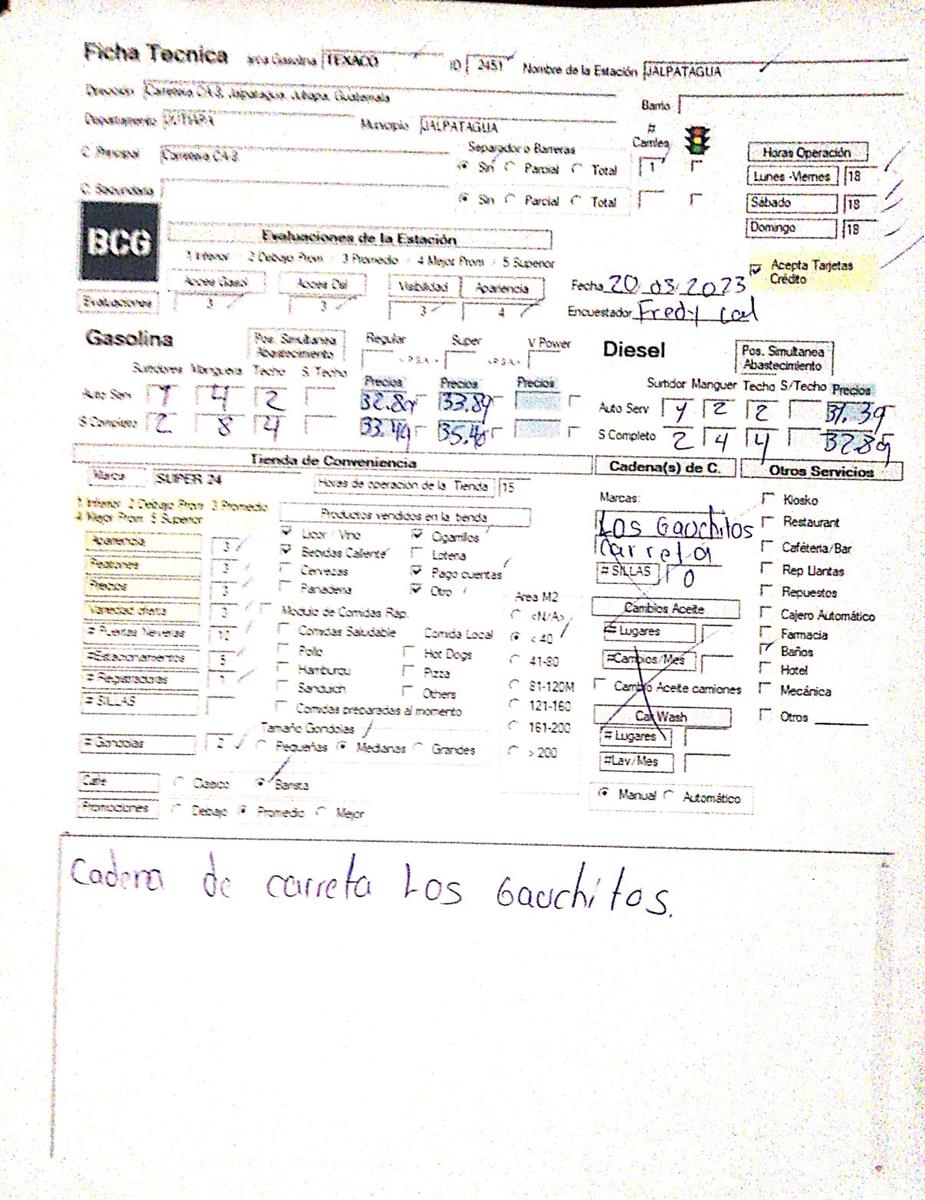 Ficha Tecnica Area Gasolina TEXACO ID 2451 Nombre de la Estación JALPATAGUA
Dirección Carretera CA-8, Jalpatagua, Jutiapa, Guatemala Barrio
Departamento JUTIAPA Municipio JALPATAGUA # Carriles
C. Principal Carretera CA-8 Separador o Barreras Sin Parcial Total 1
C. Secundaria Sin Parcial Total
Horas Operación
Lunes -Viernes 18
Sábado 18
Domingo 18
BCG
Evaluaciones de la Estación
1 Inferior / 2 Debajo Prom / 3 Promedio / 4 Mejor Prom / 5 Superior
Acces Gasol Acces Dsl Visibilidad Apariencia
Evaluaciones 3 3 3 4
Acepta Tarjetas Crédito
Fecha 20/03/2023
Encuestador Fredy Cal
Gasolina Pos. Simultanea Abastecimiento Regular Super V Power
Surtidores Manguera Techo S. Techo Precios Precios Precios
Auto Serv 1 4 2 32.89 33.89
S Completo 2 8 4 33.49 35.40
Diesel Pos. Simultanea Abastecimiento
Surtidor Manguer Techo S/Techo Precios
Auto Serv 2 2 31.39
S Completo 2 4 4 32.89
Tienda de Conveniencia
Marca SUPER 24 Horas de operación de la Tienda 15
1 Inferior 2 Debajo Prom 3 Promedio
4 Mejor Prom 5 Superior
Apariencia 3
Peatones 3
Precios 3
Variedad oferta 3
# Puertas Neveras 10
#Estacionamientos 5
# Registradoras 1
# SILLAS
# Gondolas 2
Productos vendidos en la tienda
Licor / Vino Cigarrillos
Bebidas Caliente Loteria
Cervezas Pago cuentas
Panaderia Otro
Modulo de Comidas Rap.
Comidas Saludable Comida Local
Pollo Hot Dogs
Hamburgu Pizza
Sanduich Others
Comidas preparadas al momento
Area M2
<N/A>
< 40
41-80
81-120M
121-160
161-200
> 200
Tamaño Gondolas
Pequeñas Medianas Grandes
Cafe Clasico Barista
Promociones Debajo Promedio Mejor
Cadena(s) de C.
Marcas:
Los Gauchitos
Carreta
# SILLAS 0
Cambios Aceite
# Lugares
#Cambios/Mes
Cambio Aceite camiones
Car Wash
# Lugares
#Lav/Mes
Manual Automático
Otros Servicios
Kiosko
Restaurant
Caféteria/Bar
Rep Llantas
Repuestos
Cajero Automático
Farmacia
Baños
Hotel
Mecánica
Otros
Cadena de carreta Los Gauchitos.